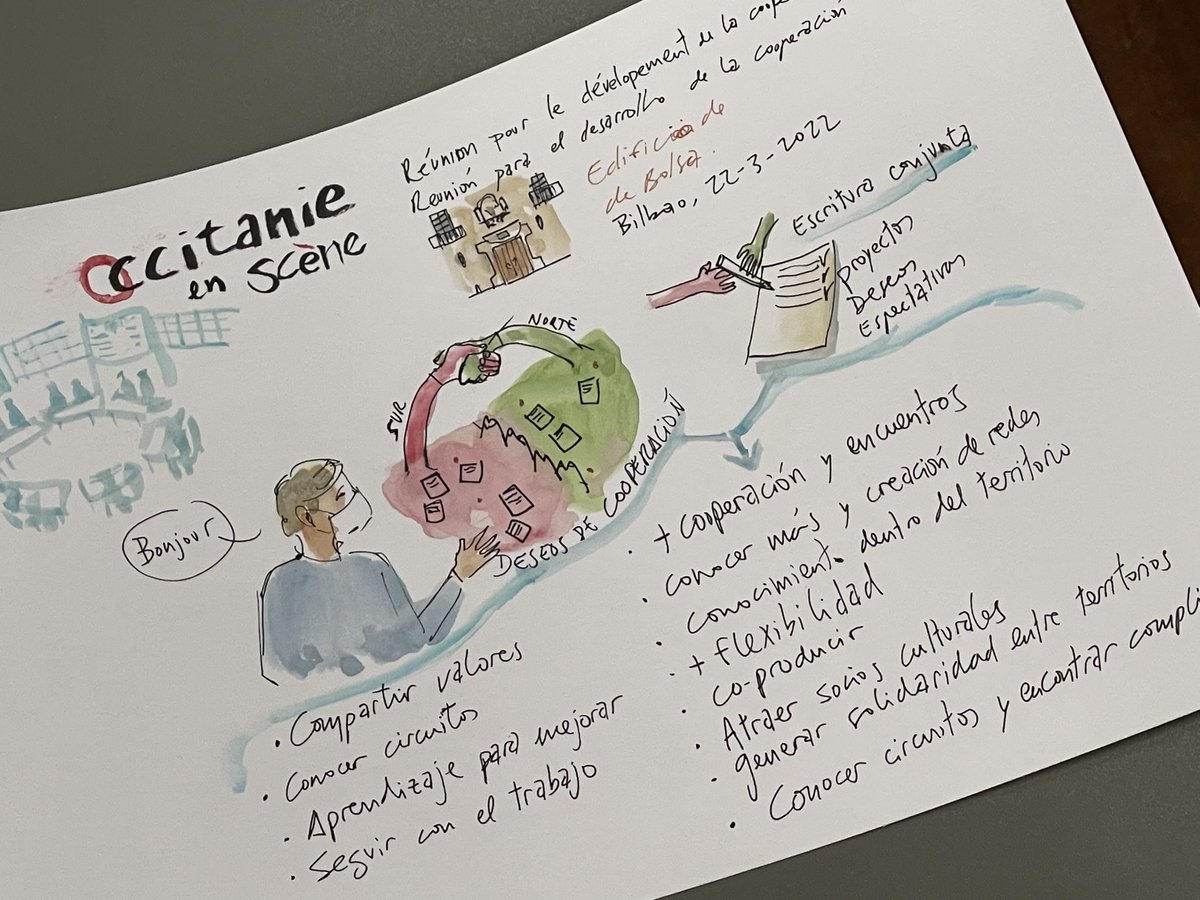 Occitanie
en scène
Réunion pour le dévelopement de la
Reunión para el desarrollo de la cooperación
Edificio de
de Bolsa.
Bilbao, 22-3-2022
Escritura conjunta
Proyectos
Deseos
Espectativas
NORTE
SUR
DESEOS DE COOPERACIÓN
Bonjour
· Compartir valores
· Conocer circuitos
· Aprendizaje para mejorar
· Seguir con el trabajo
· + cooperación y encuentros
· conocer más y creación de redes
· conocimiento dentro del territorio
+ flexibilidad
· co-producir
· Atraer socios culturales
· generar solidaridad entre territorios
· Conocer circuitos y encontrar